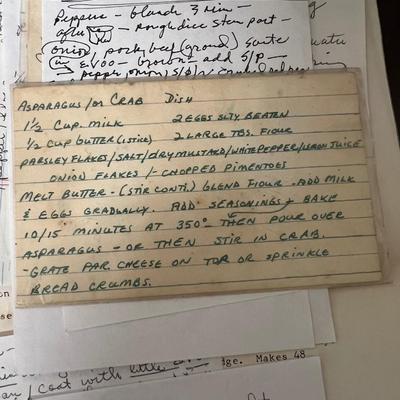 Peppers - blanch 3 min -
after - rough dice stem part -
onion, pork, beef (ground) Sauté
EVOO - brown - add S/P -
ASPARAGUS/OR CRAB DISH
1 1/2 CUP. MILK 2 EGGS SLTY BEATEN
1/2 CUP BUTTER (1 STICK) 2 LARGE TBS. FLOUR
PARSLEY FLAKES/SALT/DRY MUSTARD/WHITE PEPPER/LEMON JUICE
ONION FLAKES/-CHOPPED PIMENTOES
MELT BUTTER - (STIR CONT.) BLEND FLOUR - ADD MILK
& EGGS GRADUALLY. ADD SEASONINGS & BAKE
10/15 MINUTES AT 350° - THEN POUR OVER
ASPARAGUS - OR THEN STIR IN CRAB.
-GRATE PAR. CHEESE ON TOP OR SPRINKLE
BREAD CRUMBS.
coat with little
ge. Makes 48